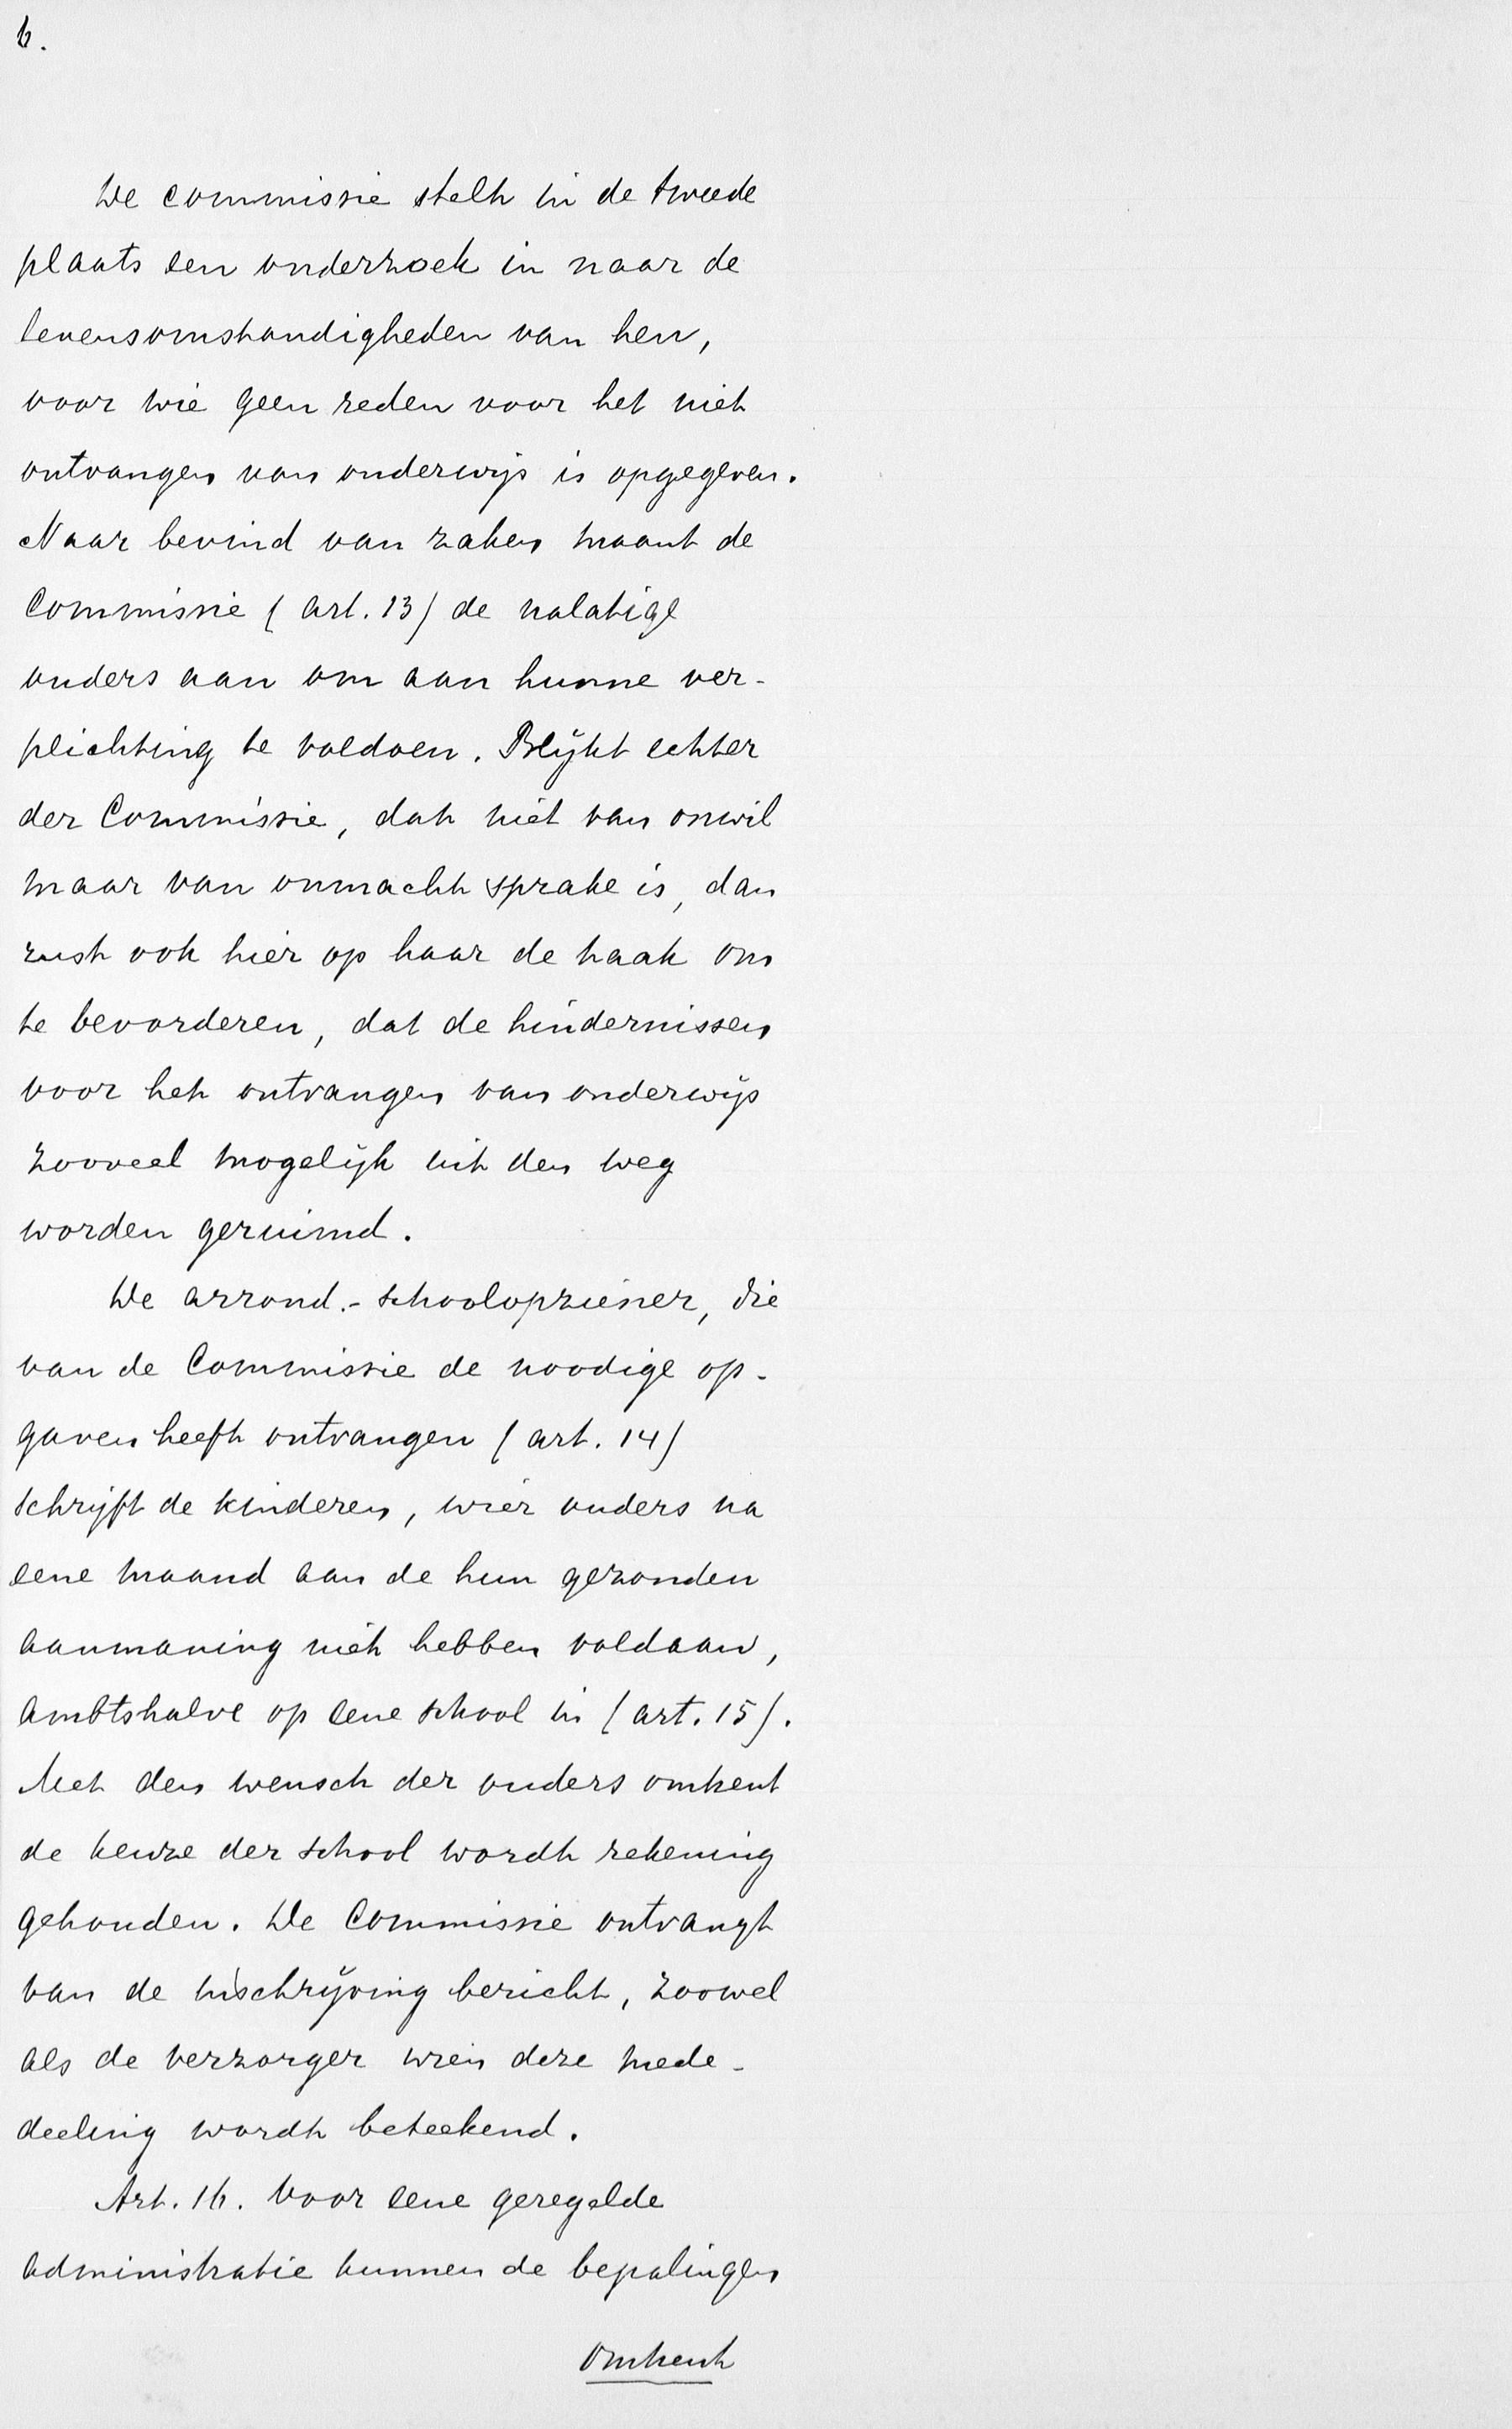 6.
De commissie stelt in de tweede
plaats een onderzoek in naar de
levensomstandigheden van hen,
voor wie geen reden voor het niet
ontvangen van onderwijs is opgegeven.
Naar bevind van zaken maant de
Commissie (art. 13) de nalatige
ouders aan om aan hunne ver-
plichting te voldoen. Blijkt echter
der Commissie, dat niet van onwil
maar van onmacht sprake is, dan
rust ook hier op haar de taak om
te bevorderen, dat de hindernissen
voor het ontvangen van onderwijs
zooveel mogelijk uit den weg
worden geruimd.
De arrond.-schoolopziener, die
van de Commissie de noodige op-
gaven heeft ontvangen (art. 14)
schrijft de kinderen, wier ouders na
eene maand aan de hun gezonden
aanmaning niet hebben voldaan,
ambtshalve op eene school in (art. 15).
Met den wensch der ouders omtrent
de keuze der school wordt rekening
gehouden. De Commissie ontvangt
van de inschrijving bericht, zoowel
als de verzorger wien deze mede-
deeling wordt beteekend.
Art. 16. Voor eene geregelde
administratie kunnen de bepalingen
omtrent